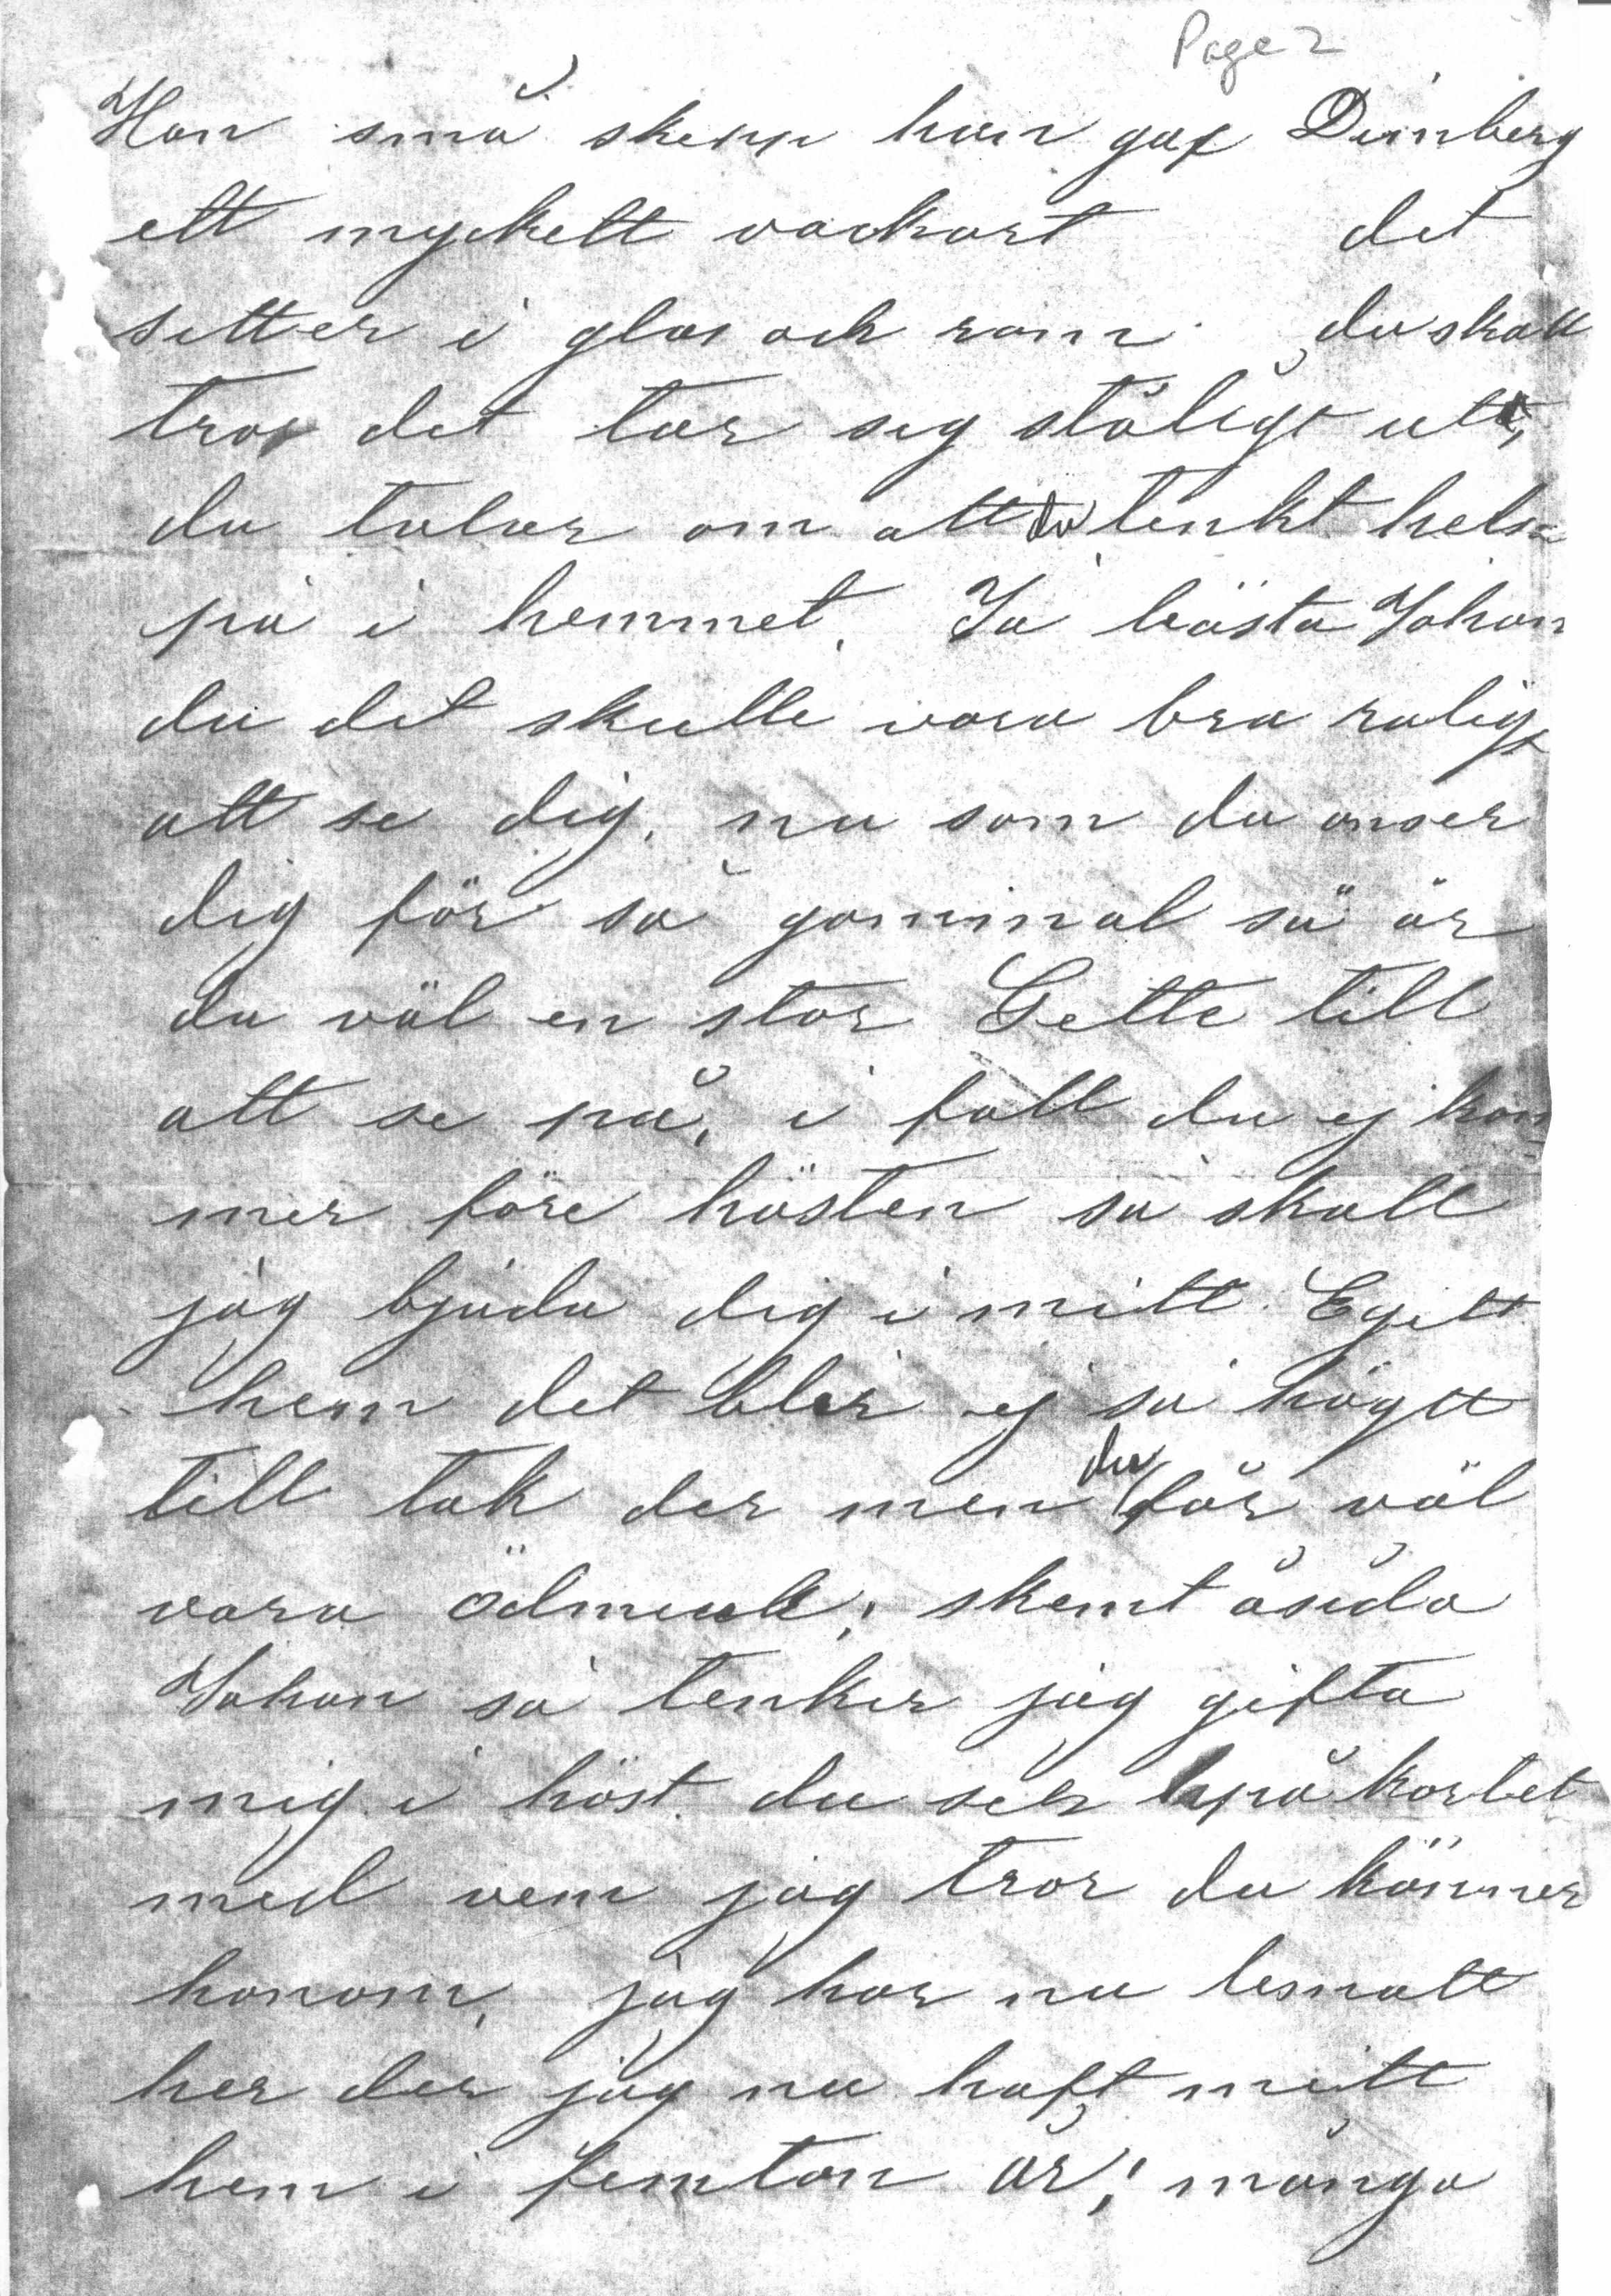 Page 2
Han små skepp han gaf Dunberg
ett myckett vackert det
sitter i glas och ram du skall
tro det tar sig ståligt utt,
du talar om att du tenkt helsa
på i hemmet. Ja bästa Johan
du det skulle vara bra rolig
att se dig, nu som du anser
dig för så gammal så är
du väl en stor Gette till
att se på, i fall du ej kom
mer före hösten så skall
jag bjuda dig i mitt Egett
hem det blir ej så högtt
till tak der men du får väl
vara ödmuk, skemt åsida
Johan så tenker jag gifta
mig i höst du ser på kortet
med vem jag tror du känner
honom, jag har nu
her der jag nu haft mitt
hem i femton år, många